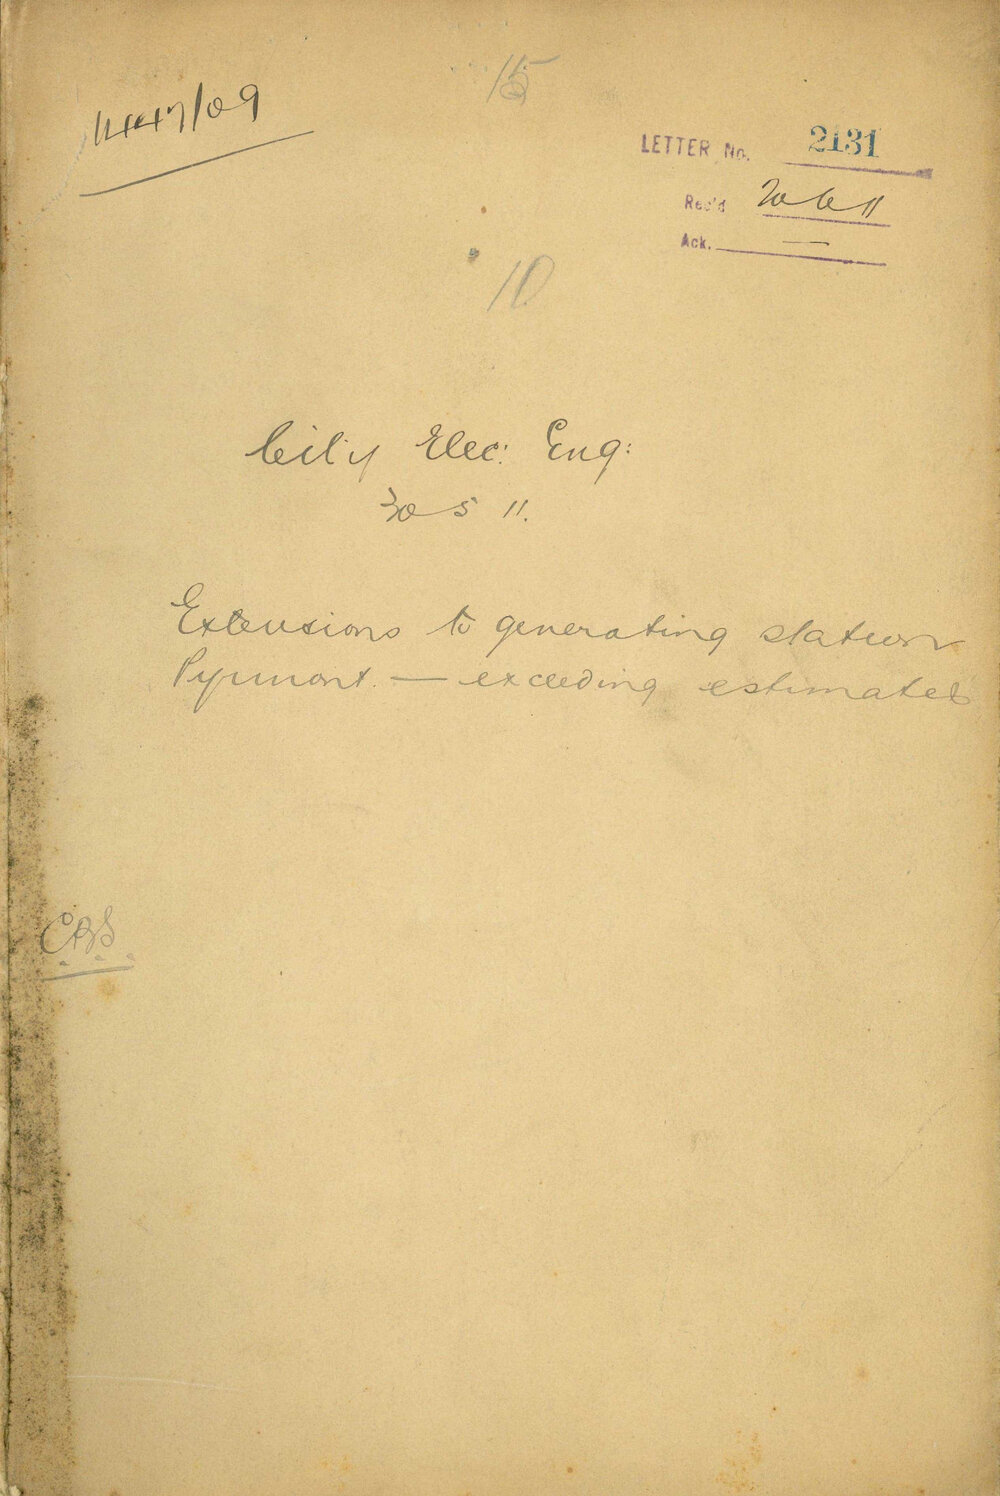 15
1447/09
LETTER No. 2131
Rec'd 20 6 11
Ack. —
10
City Elec: Eng:
30 5 11.
Extensions to generating station
Pyrmont. — exceeding estimates